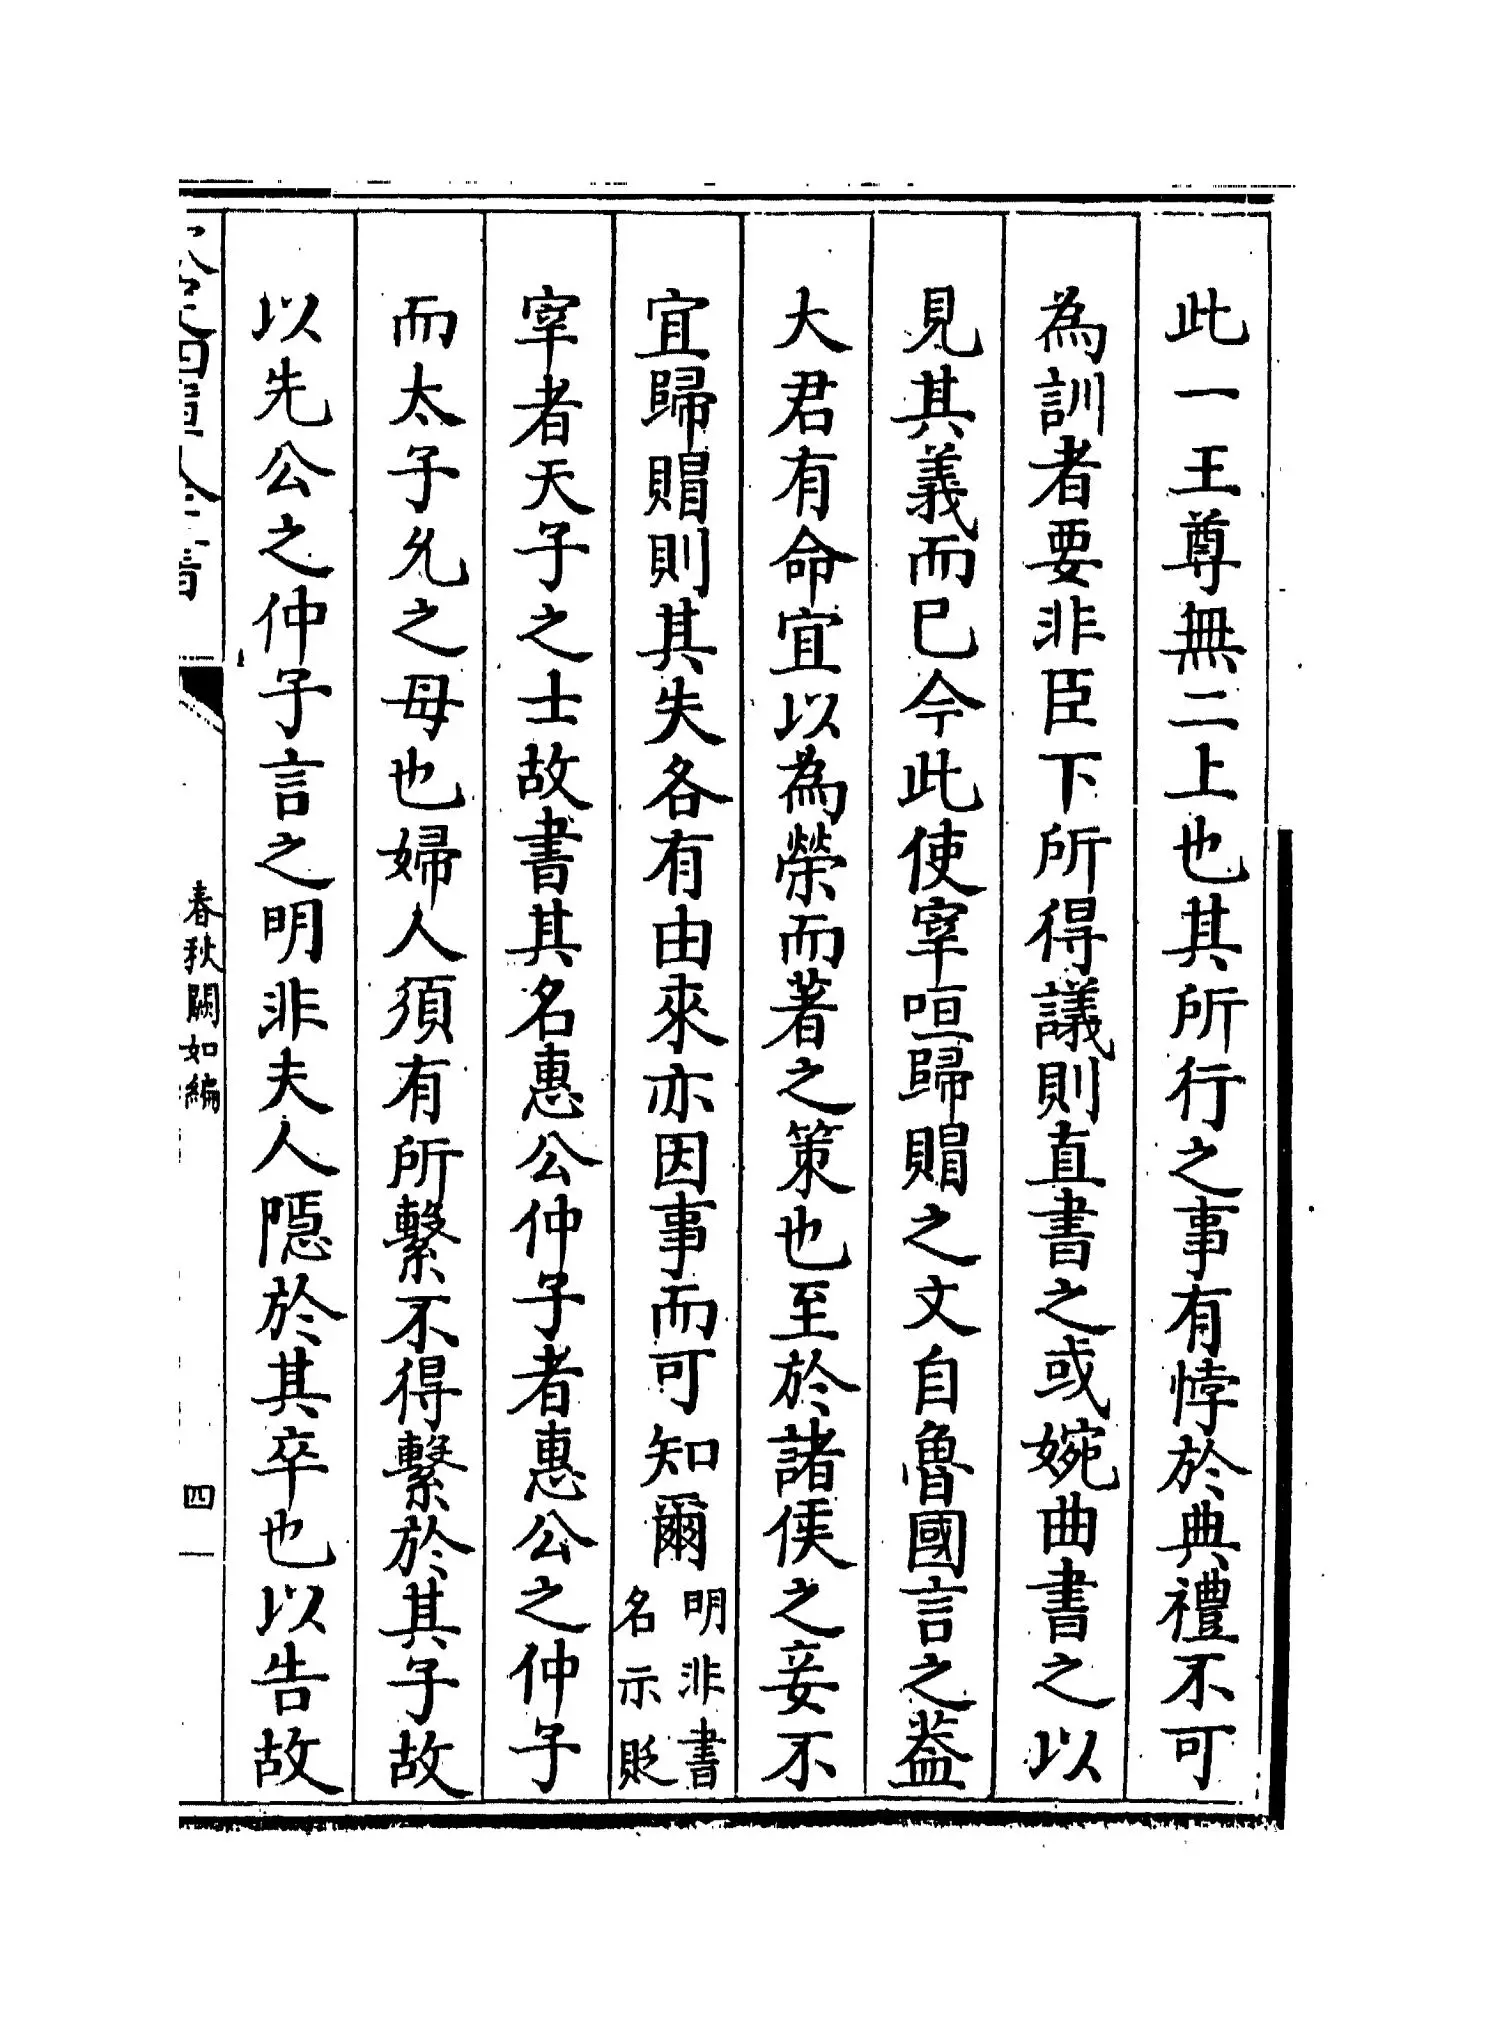 此一王尊無二上也其所行之事有悖於典禮不可
為訓者要非臣下所得議則直書之或婉曲書之以
見其義而已今此使宰咺歸賵之文自魯國言之葢
大君有命宜以為榮而著之策也至於諸侯之妾不
宜歸賵則其失各有由來亦因事而可知爾明非書名示貶
宰者天子之士故書其名惠公仲子者惠公之仲子
而太子允之母也婦人須有所繫不得繫於其子故
以先公之仲子言之明非夫人隱於其卒也以告故
春秋闕如編
四